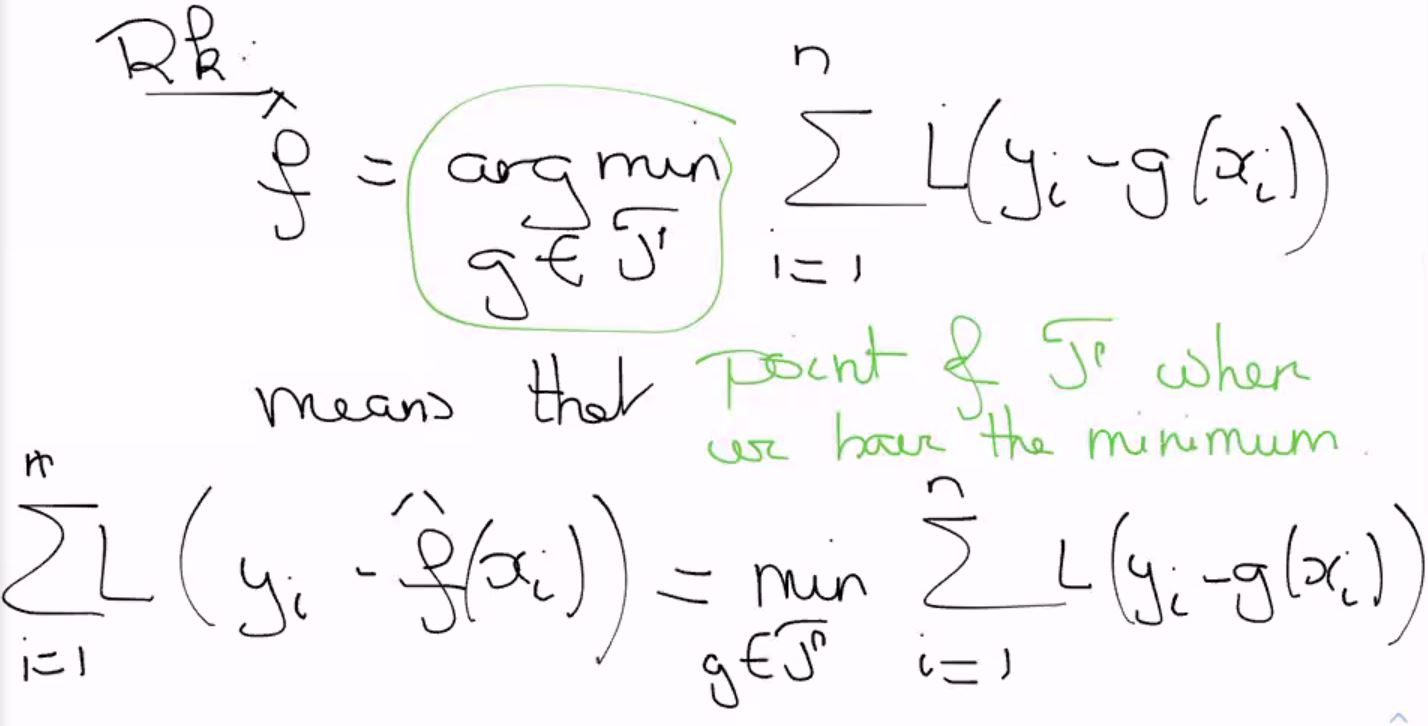 Rk.
f̂ = arg min g ∈ 𝓕 ∑ i=1 n L(y_i - g(x_i))
means that point of 𝓕 where
we have the minimum.
∑ i=1 n L(y_i - f̂(x_i)) = min g ∈ 𝓕 ∑ i=1 n L(y_i - g(x_i))